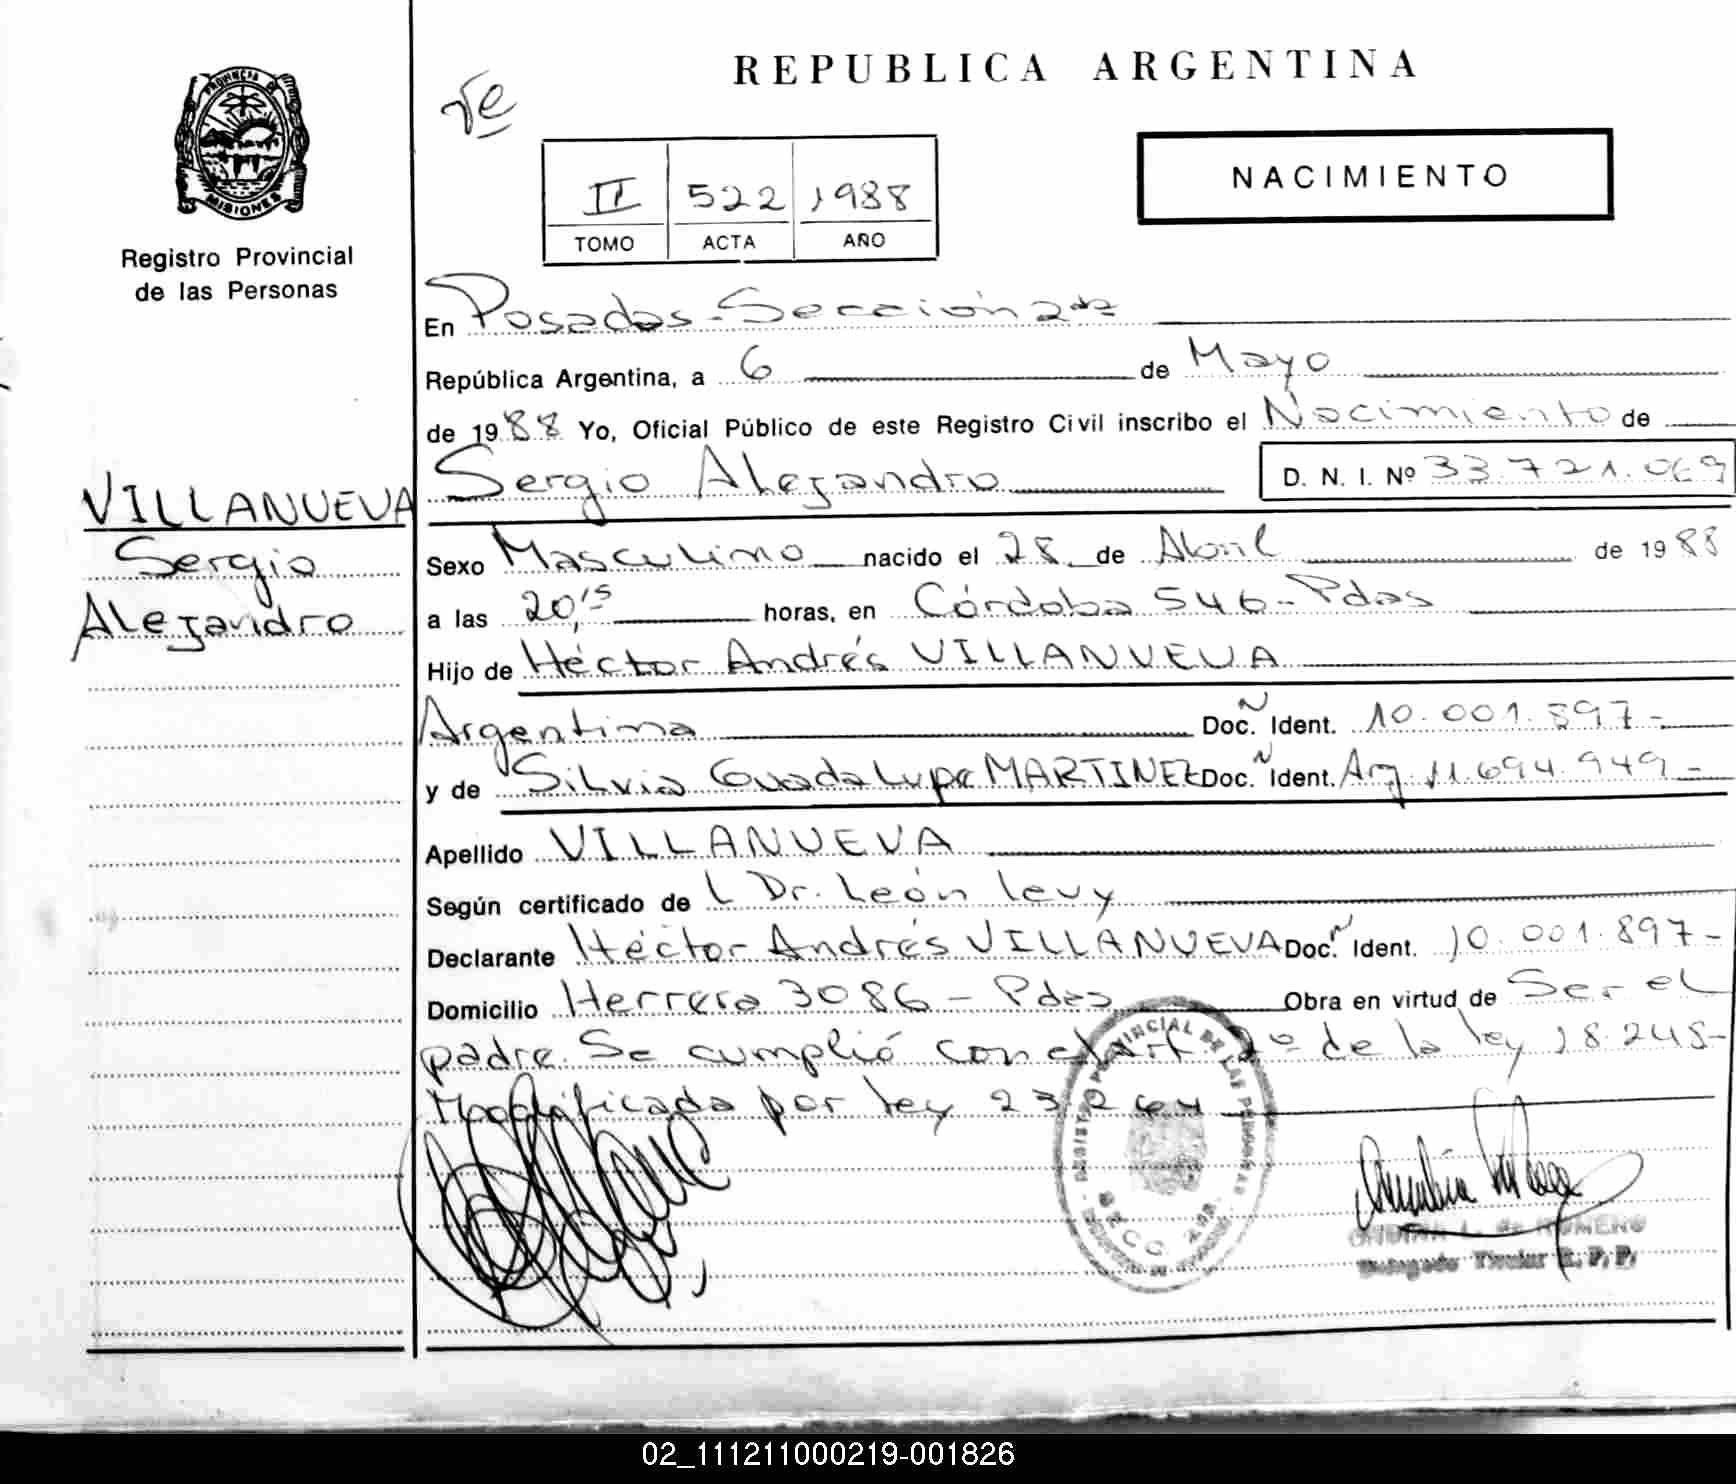 REPUBLICA ARGENTINA
PROVINCIA DE
MISIONES
Registro Provincial
de las Personas
II 522 1988
TOMO ACTA AÑO
NACIMIENTO
En Posadas - Sección 2da
República Argentina, a 6 de Mayo
de 1988 Yo, Oficial Público de este Registro Civil inscribo el Nacimiento de
Sergio Alejandro D. N. I. Nº 33.721.069
VILLANUEVA
Sergio
Alejandro
Sexo Masculino nacido el 28 de Abril de 1988
a las 20,15 horas, en Córdoba 546 - Pdas
Hijo de Héctor Andrés VILLANUEVA
Argentina Doc. Ident. 10.001.897-
y de Silvia Guadalupe MARTINEZ Doc. Ident. Arg. 11.694.949-
Apellido VILLANUEVA
Según certificado de L Dr. León levy
Declarante Héctor Andrés VILLANUEVA Doc. Ident. 10.001.897-
Domicilio Herrera 3086 - Pdas Obra en virtud de Ser el
padre. Se cumplió con el art. 2º de la ley 18.248-
Modificada por ley 23264
REGISTRO PROVINCIAL DE LAS PERSONAS
SECC. 2da.
L. de ROMERO
Delegado Titular R. P. P.
02_111211000219-001826